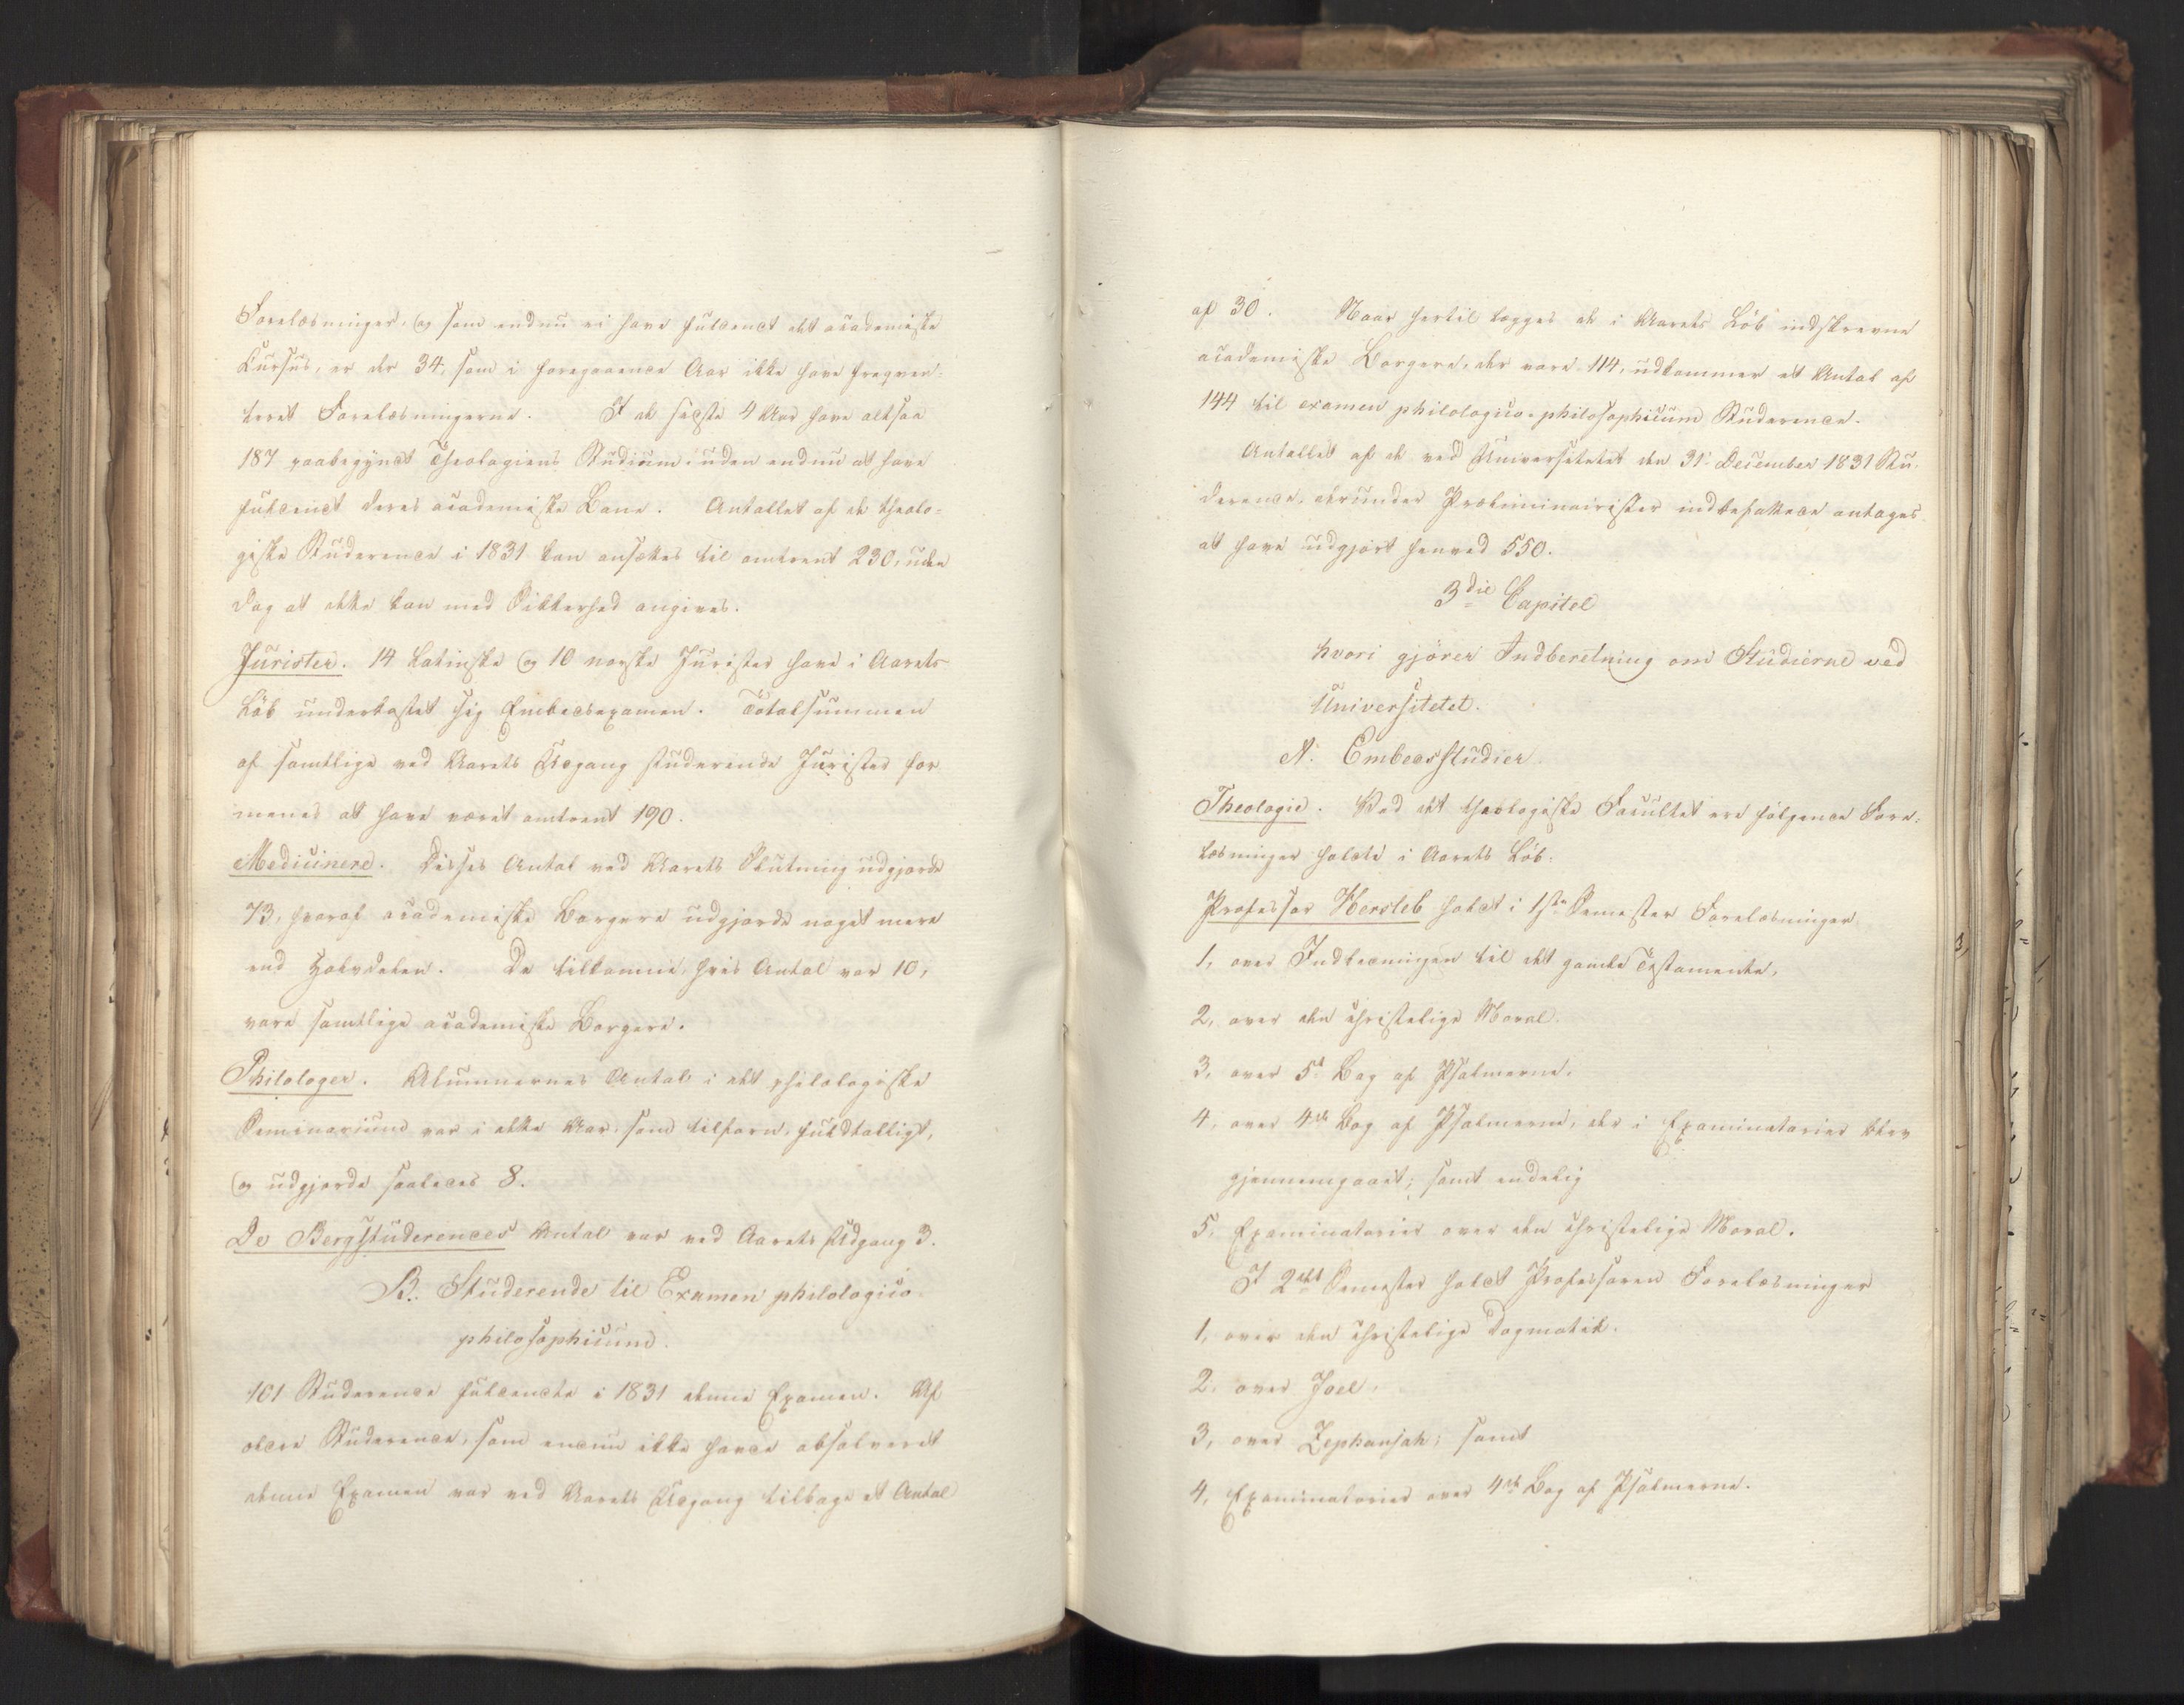 Forelæsninger, og som endnu ei have fuldendt det academiske
Cursus, er der 34, som i foregaaende Aar ikke have freqven-
teret Forelæsningerne. I de sidste 4 Aar have altsaa
187 paabegyndt Theologiens Studium, uden endnu at have
fuldendt deres academiske Bane. Antallet af de theolo-
giske Studerende i 1831 kan ansættes til omtrent 230, uden
dog at dette kan med Sikkerhed angives.
Jurister. 14 Latinske og 10 norske Jurister have i Aarets
Løb underkastet sig Embedsexamen. Totalsummen
af samtlige ved Aarets Udgang studerende Jurister for
menes at have været omtrent 190.
Medicinere. Disses Antal ved Aarets Slutning udgjorde
73, hvoraf academiske Borgere udgjorde noget mere
end Halvdelen. De tilkomne, hvis Antal var 10,
vare samtlige academiske Borgere.
Philologer. Alumnernes Antal i det philologiske
Seminarium var i dette Aar, som tilforn, fuldtalligt,
og udgjorde saaledes 8.
De Bergstuderendes Antal var ved Aarets Udgang 3.
B. Studerende til Examen philologico
philosophicum.
101 Studerende fuldendte i 1831 denne Examen. Af
ældre Studerende, som endnu ikke havde absolveret
denne Examen var ved Aarets Udgang tilbage et Antal
af 30. Naar hertil lægges de i Aarets Løb indskrevne
academiske Borgere, der vare 114, udkommer et Antal af
144 til examen philologico-philosophicum Studerende.
Antallet af de ved Universitetet den 31. December 1831 Stu-
derende, derunder Præliminairister indbefattede antages
at have udgjort henved 550.
3die Capitel
hvori gjöres Indberetning om Studierne ved
Universitetet.
A. Embedsstudier.
Theologie. Ved det theologiske Facultet ere følgende Fore-
læsninger holdte i Aarets Løb:
Professor Hersleb holdt i 1ste Semester Forelæsninger
1, over Indledningen til det gamle Testamente,
2, over den christelige Moral.
3, over 5te Bog af Psalmerne.
4, over 4de Bog af Psalmerne, der i Examinatorier blev
gjennemgaaet; samt endelig
5, Examinatorier over den christelige Moral.
I 2det Semester holdt Professoren Forelæsninger
1, over den christelige Dogmatik.
2, over Joel,
3, over Zephanjah; samt
4, Examinatorier over 4de Bog af Psalmerne.